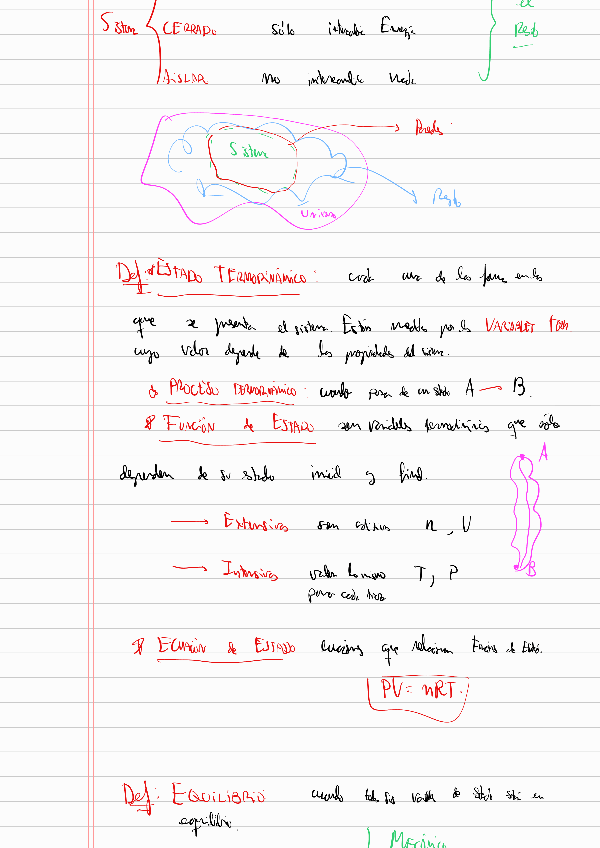 el
Sistema CERRADO sólo intercambia Energía
Resto
AISLAR no intercambia nada
Paredes
Sistema
Resto
Universo
Def: ESTADO TERMODINÁMICO: cada una de las formas en las
que se presenta el sistema. Están por las VARIABLES
cuyo valor depende de las propiedades del sistema.
PROCESO TERMODINÁMICO: cuando pasa de un estado A → B.
FUNCIÓN de ESTADO son variables termodinámicas que sólo
A
dependen de su estado inicial y final.
→ Extensivas son n, V
→ Intensivas valen lo mismo T, P
B
para cada
ECUACIÓN de ESTADO ecuaciones que relacionan Funciones de Estado.
PV = nRT.
Def: EQUILIBRIO cuando todas sus variables de estado están en
equilibrio.
Mecánico